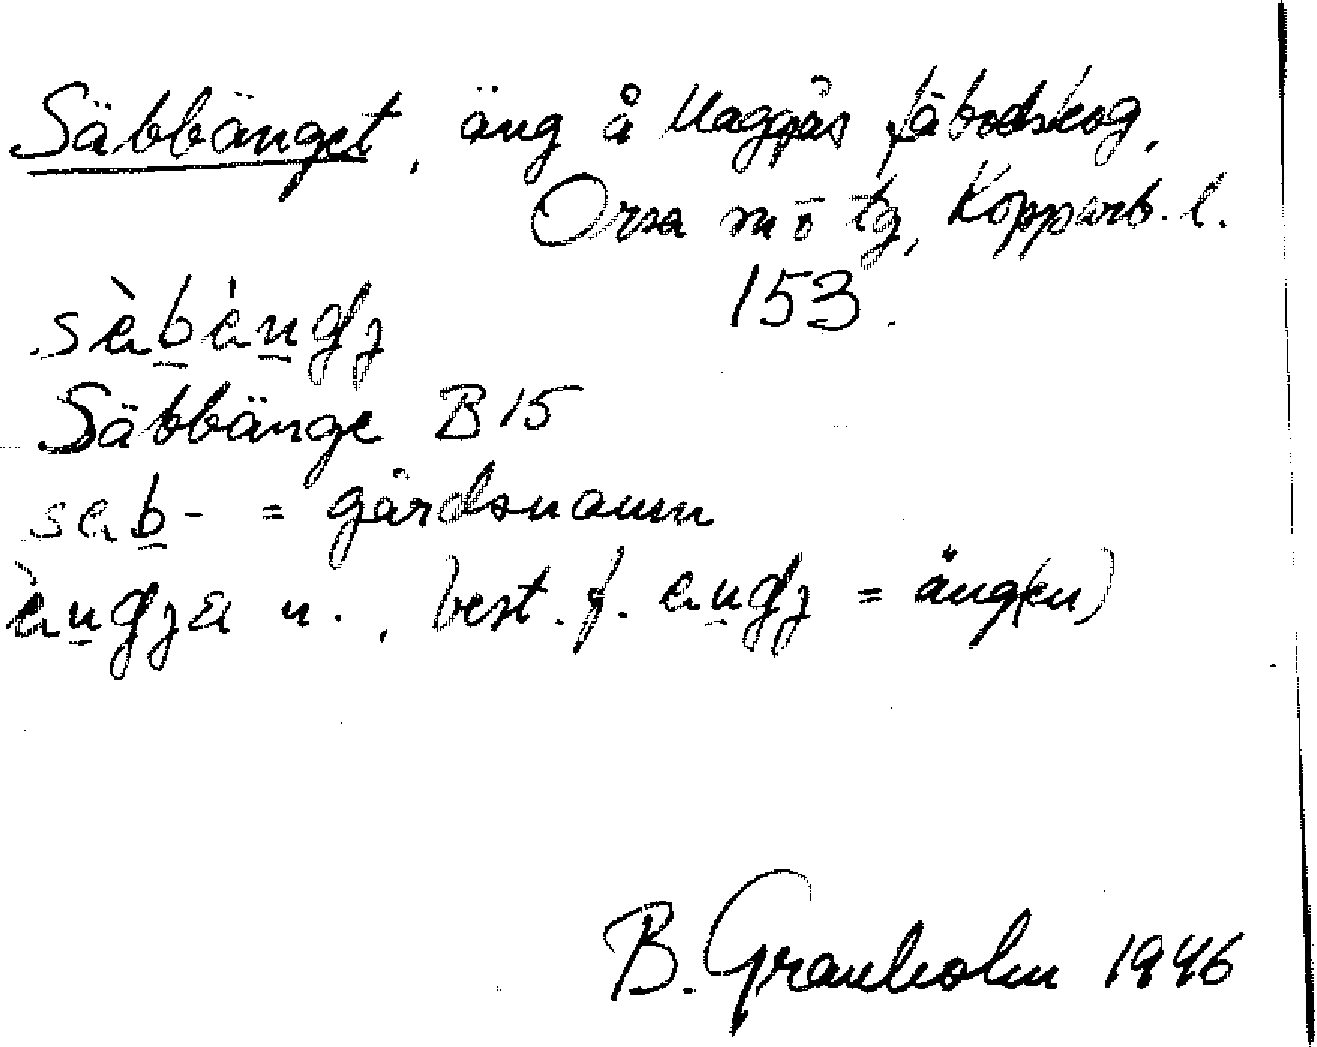 Säbbänget, äng å Maggås fäbodskog,
Orsa sn o tg, Kopparb. l.
153.
Säbbänge B 15
= gårdsnamn
n., best. f. = äng(en)
B. Granholm 1946